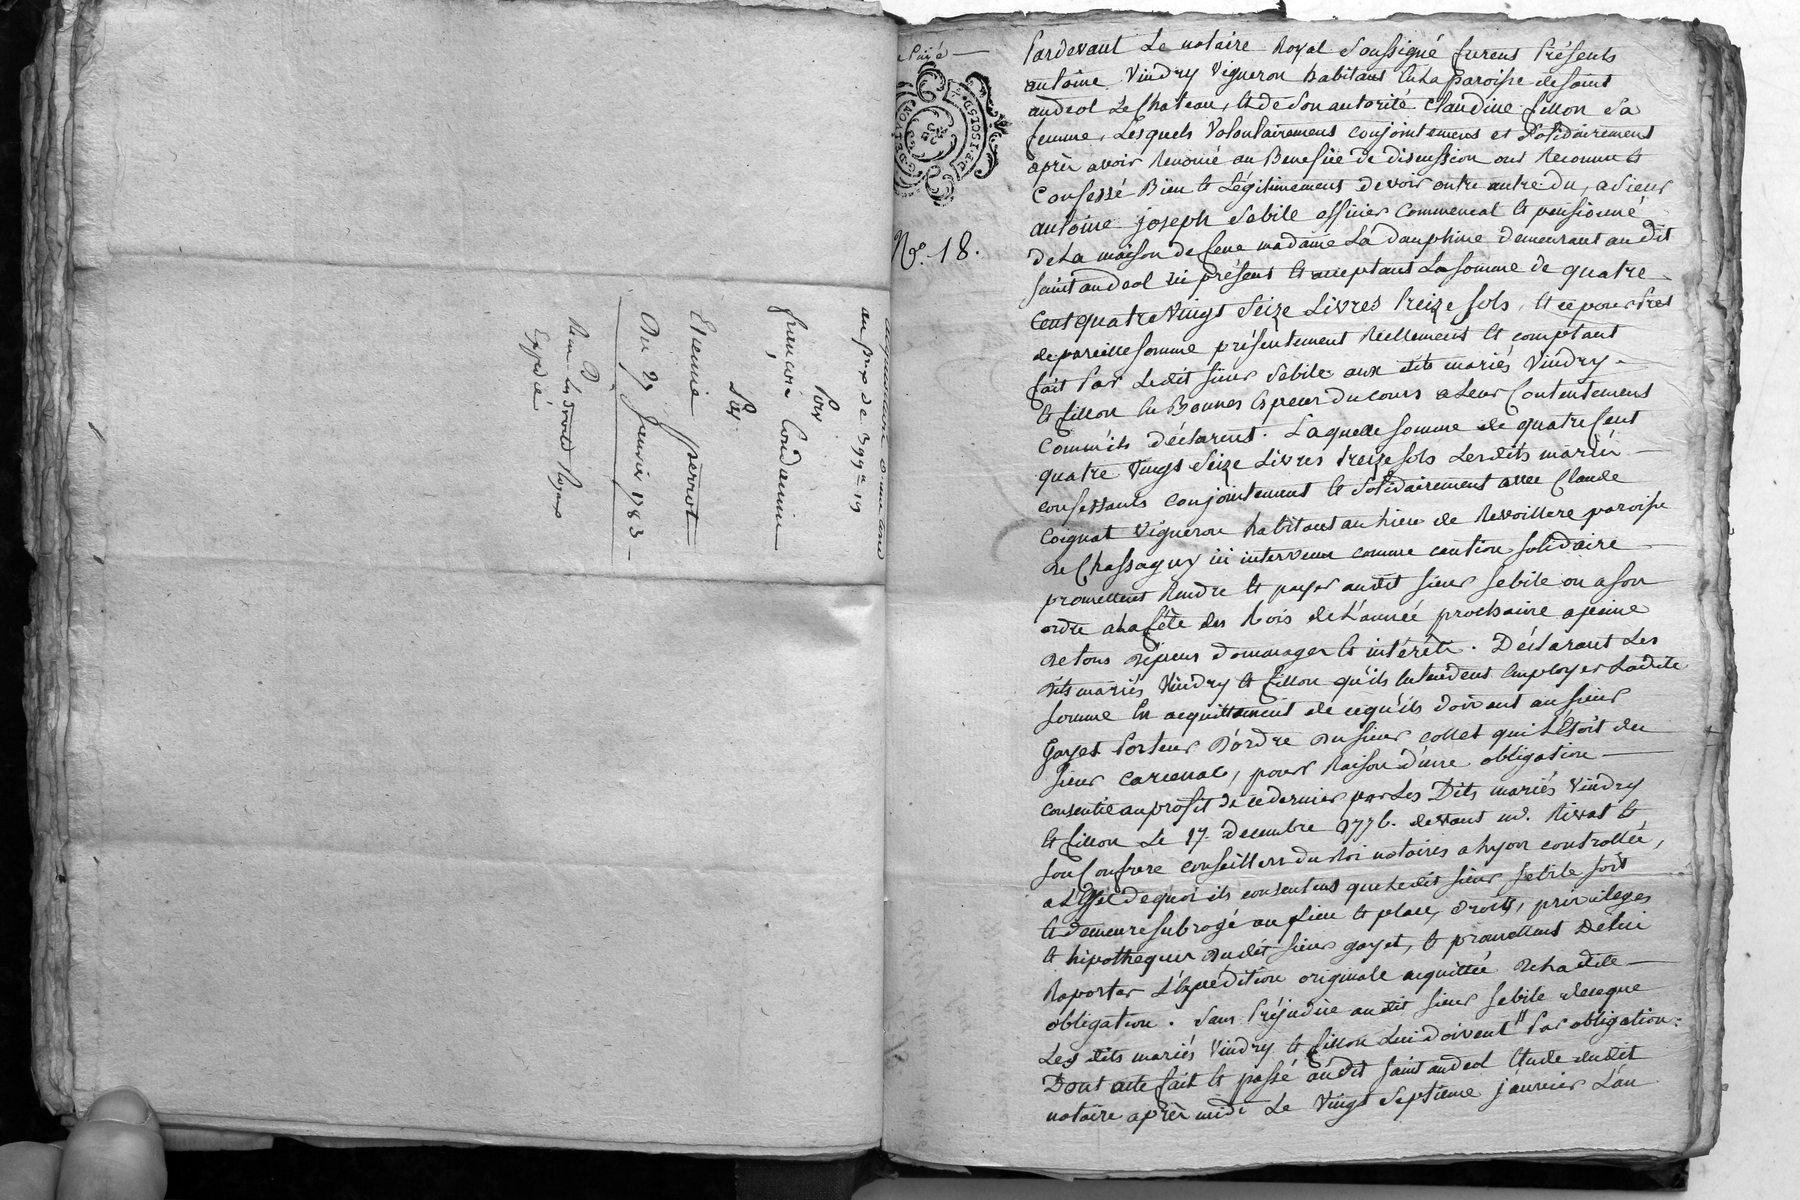 acquisition d'une terre
au prix de 399# 19
Pour
françoise Condamin
Par
Etienne perrot
Du 27 Janvier 1783
Expedié
N.° 18.
Pardevant Le notaire Royal Soussigné furent Présents
antoine Vindry Vigneron habitant En La paroisse de saint
andeol Le Chateau, et de son autorité Claudine fillon Sa
femme, Lesquels Volontairement conjointement et Solidairement
après avoir Renoncé au Benefice de discussion ont Reconnu et
Confessé Bien et Légitimement devoir outre autre du, a Sieur
antoine joseph Sebile officier Commencal et pensionné
de La maison de feue madame La dauphine demeurant au dit
saint andeol ici présent et acceptant La somme de quatre
Cent quatre Vingt Seize Livres Treize sols, et ce pour Prêt
de pareille somme présentement Réellement et comptant
fait Par Ledit sieur Sebile aux dits mariés Vindry
et fillon En Bonnes Espèces du cours a Leur Contentement
Comm'ils déclarent. Laquelle somme de quatre Cent
quatre Vingt Seize Livres treize sols Lesdits mariés
confessants conjointement et Solidairement avec Claude
Coignat Vigneron habitant au lieu de Revoillere paroisse
de Chassagny ici intervenu comme caution solidaire
promettent Rendre et payer audit sieur sebile ou a son
ordre a La fête des Rois de L'année prochaine a peine
de tous dépens dommages et intérêts. Déclarant Les
dits mariés Vindry et fillon qu'ils Entendent Employer Ladite
somme En acquittement de ce qu'ils doivent au sieur
Gayet Porteur D'ordre du sieur collet qui L'étoit du
sieur Carcenac, pour Raison d'une obligation
consentie au profit de ce dernier par Les Dits mariés Vindry
et fillon Le 17. decembre 1776. devant m.e Rivat et
son Confrere conseillers du Roi notaires a Lyon controllée,
a L'Effet de quoi ils consentent que Ledit sieur sebile soit
et demeure subrogé au Lieu et place, droits, privileges
et hipotheques dudit sieur gayet, et promettent De lui
Raporter L'Expédition originale acquittée de La dite
obligation. Sans Préjudice audit sieur sebile de ce que
Les dits mariés Vindry et fillon Lui doivent " Par obligation:
Dont acte fait et passé audit saint andeol Etude dudit
notaire après midi Le Vingt Septieme janvier L'an